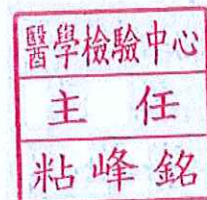 醫學檢驗中心
主任
粘峰銘